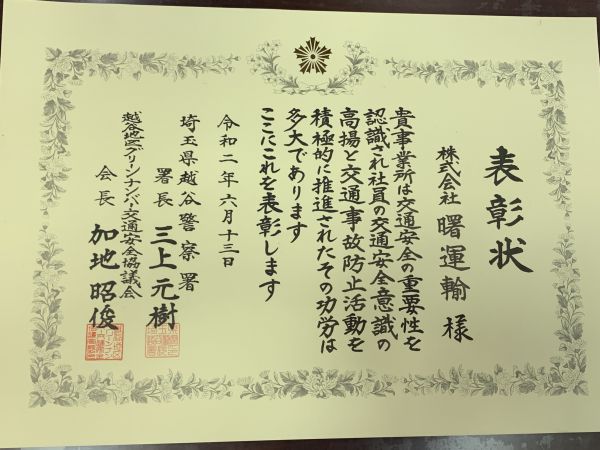 表彰状
株式会社 曙運輸 様
貴事業所は交通安全の重要性を
認識され社員の交通安全意識の
高揚と交通事故防止活動を
積極的に推進されたその功労は
多大であります
ここにこれを表彰します
令和二年六月十三日
埼玉県越谷警察署
署長 三上元樹
越谷地区グリーンナンバー交通安全協議会
会長 加地昭俊